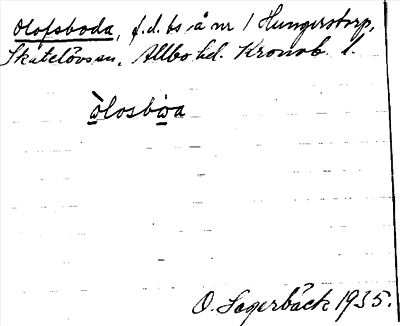 Olofsboda, f.d. bs å nr 1 Hungerstorp,
Skatelövs sn, Allbo hd. Kronob. l.
òlosbωa
O. Lagerbäck 1935.